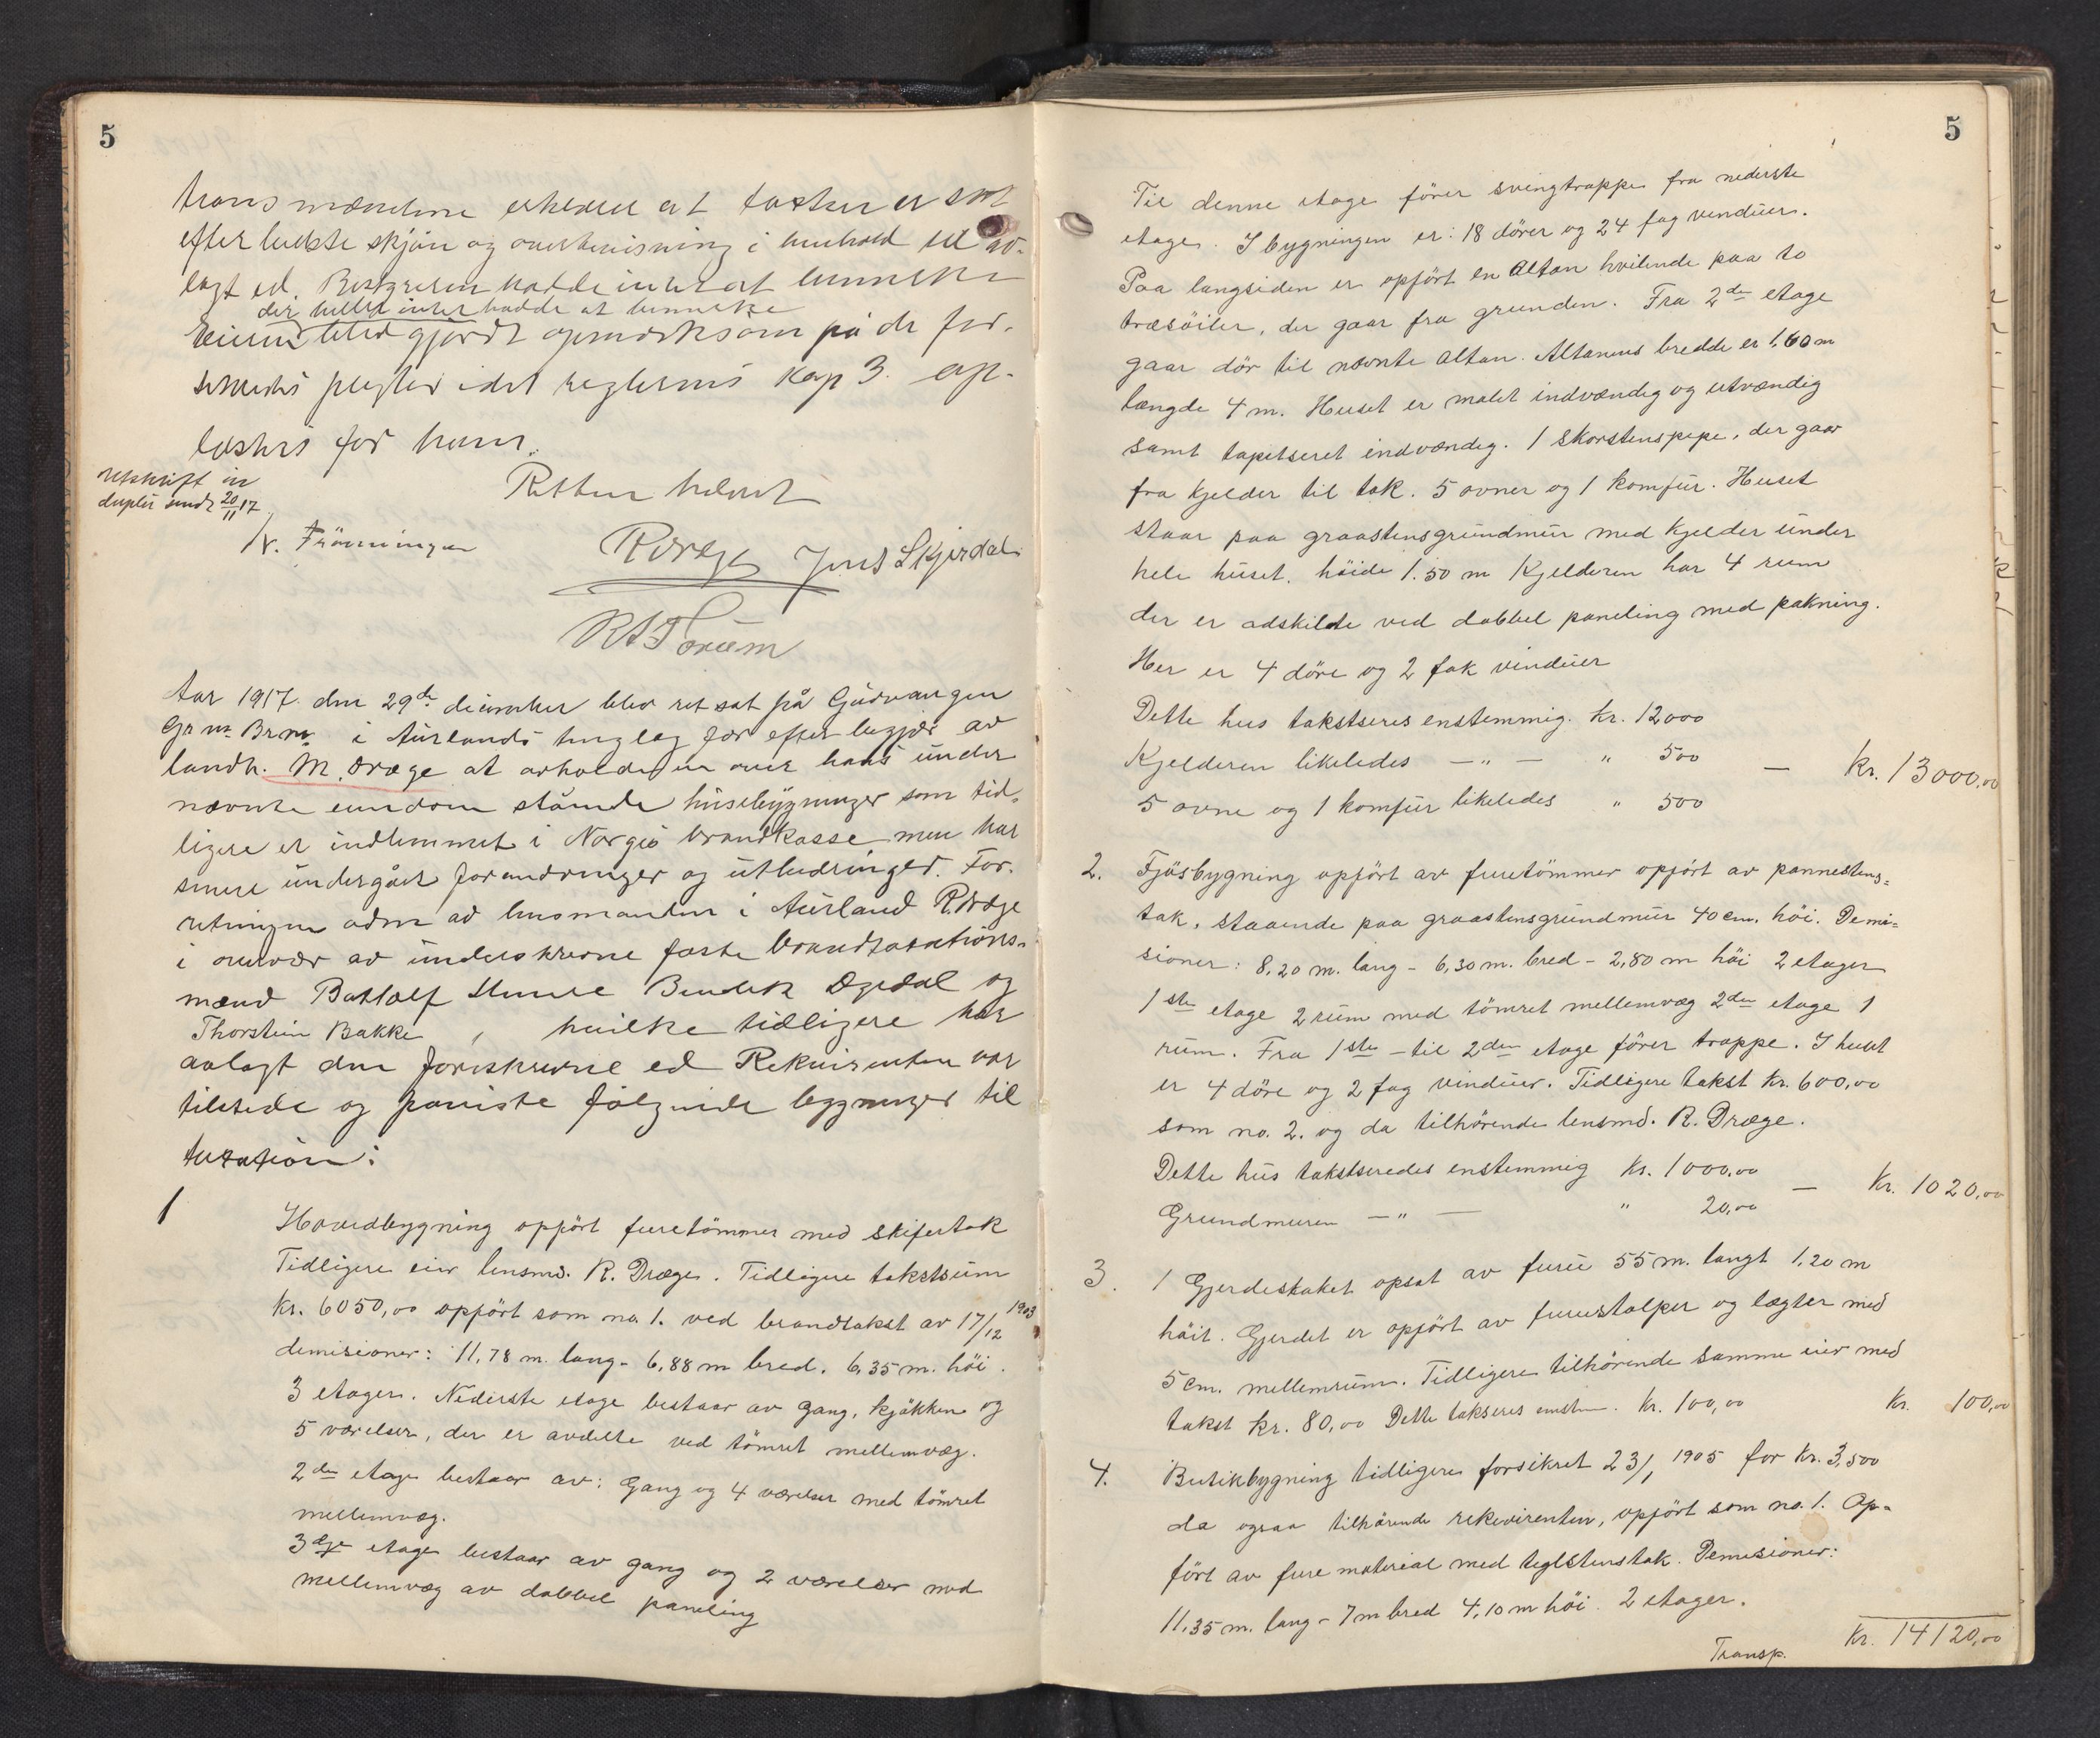 5
transmændene erklærer at taksten er sat
efter bedste skjön og overbevisning i henhold til av-
lagt ed. Bestyreren hadde intet at bemerke
der heller intet hadde at bemerke
Eieren blev gjordt opmerksom på de for-
sikredes pligter idet reglernes kap 3. op-
læstes for ham.
Retten hævet
utskrift in
duplo sendt 20/11 17
R Dræge Jens Skjerdal
Aar 1917 den 29de december blev ret sat på Gudvangen
Gr nr. Br nr. i Aurlands tinglag for efter begjær av
landh. M. Dræge at avholde en over hans under
nævnte eiendom stående husebygninger som tid-
ligere er indlemmet i Norges brandkasse men har
senere undergået forandringer og utbedringer. For-
retningen adm av lensmanden i Aurland R. Dræge
i overvær av underskrevne faste brandtaxations-
mænd Botholf Stene Bendik Øgedal og
Thorstein Bakke , hvilke tidligere har
avlagt den foreskrevne ed Rekvirenten var
tilstede og paaviste følgende bygninger til
taxation:
1
Hovedbygning opfört furetömmer med skifertak
Tidligere eier lensmd. R. Dræge. Tidligere takstsum
Kr. 6050,00 opfört som no. 1. ved brandtakst av 17/12 1903
demisioner: 11,78 m. lang - 6,88 m bred. 6,35 m. höi.
3 etager. Nederste etage bestaar av gang, kjökken og
5 værelser, der er avdelte ved tömret mellemvæg.
2den etage bestaar av: Gang og 4 værelser med tömret
mellemvæg.
3dje etage bestaar av gang og 2 værelser med
mellemvæg av dobbel paneling
5
Til denne etage förer svingtrappe fra nederste
etage. I bygningen er: 18 dörer og 24 fag vinduer.
Paa langsiden er opfört en Altan hvilende paa to
træsöiler, der gaar fra grunden. Fra 2den etage
gaar dör til nævnte altan. Altanens bredde er 1,60 m
længde 4 m. Huset er malet indvændig og utvændig
samt tapetseret indvændig. 1 skorstenspipe, der gaar
fra kjelder til tak. 5 ovner og 1 komfür. Huset
staar paa graastensgrundmur med kjelder under
hele huset. höide 1.50 m Kjelderen har 4 rum
der er adskilte ved dobbel paneling med pakning.
Her er 4 döre og 2 fak vinduer
Dette hus takstseres enstemmig. Kr. 12000
Kjelderen likeledes — " — " 500 — Kr. 13000,00
5 ovne og 1 komfür likeledes " 500
2. Fjösbygning opfört av furetömmer opfört av pannestens=
tak, staaende paa graastensgrundmur 40 cm. höi. Demi=
sioner: 8,20 m. lang - 6,30 m. bred - 2,80 m höi 2 etager
1ste etage 2 rum med tömret mellemvæg 2den etage 1
rum. Fra 1ste - til 2den etage förer trappe. I huset
er 4 döre og 2 fag vinduer. Tidligere takst Kr. 600,00
som no. 2. og da tilhörende lensmd. R. Dræge.
Dette hus takstseredes enstemmig Kr. 1000,00
Grundmuren — " — " 20,00 — Kr. 1020,00
3. 1 Gjerdestaket opsat av furu 55 m. langt 1,20 m
höit. Gjerdet er opfört av furustolper og lægter med
5 cm. mellemrum. Tidligere tilhörende samme eier med
takst kr. 80,00 Dette takseres enstem. Kr. 100,00 Kr. 100,00
4. Butikbygning tidligere forsikret 23/1 1905 for Kr. 3,500
da ogsaa tilhörende rekvirenten, opfört som no. 1. Op-
fört av fure material med teglstenstak. Demisioner:
11,35 m. lang - 7 m bred 4,10 m höi. 2 etager.
Transp. Kr. 14120,00